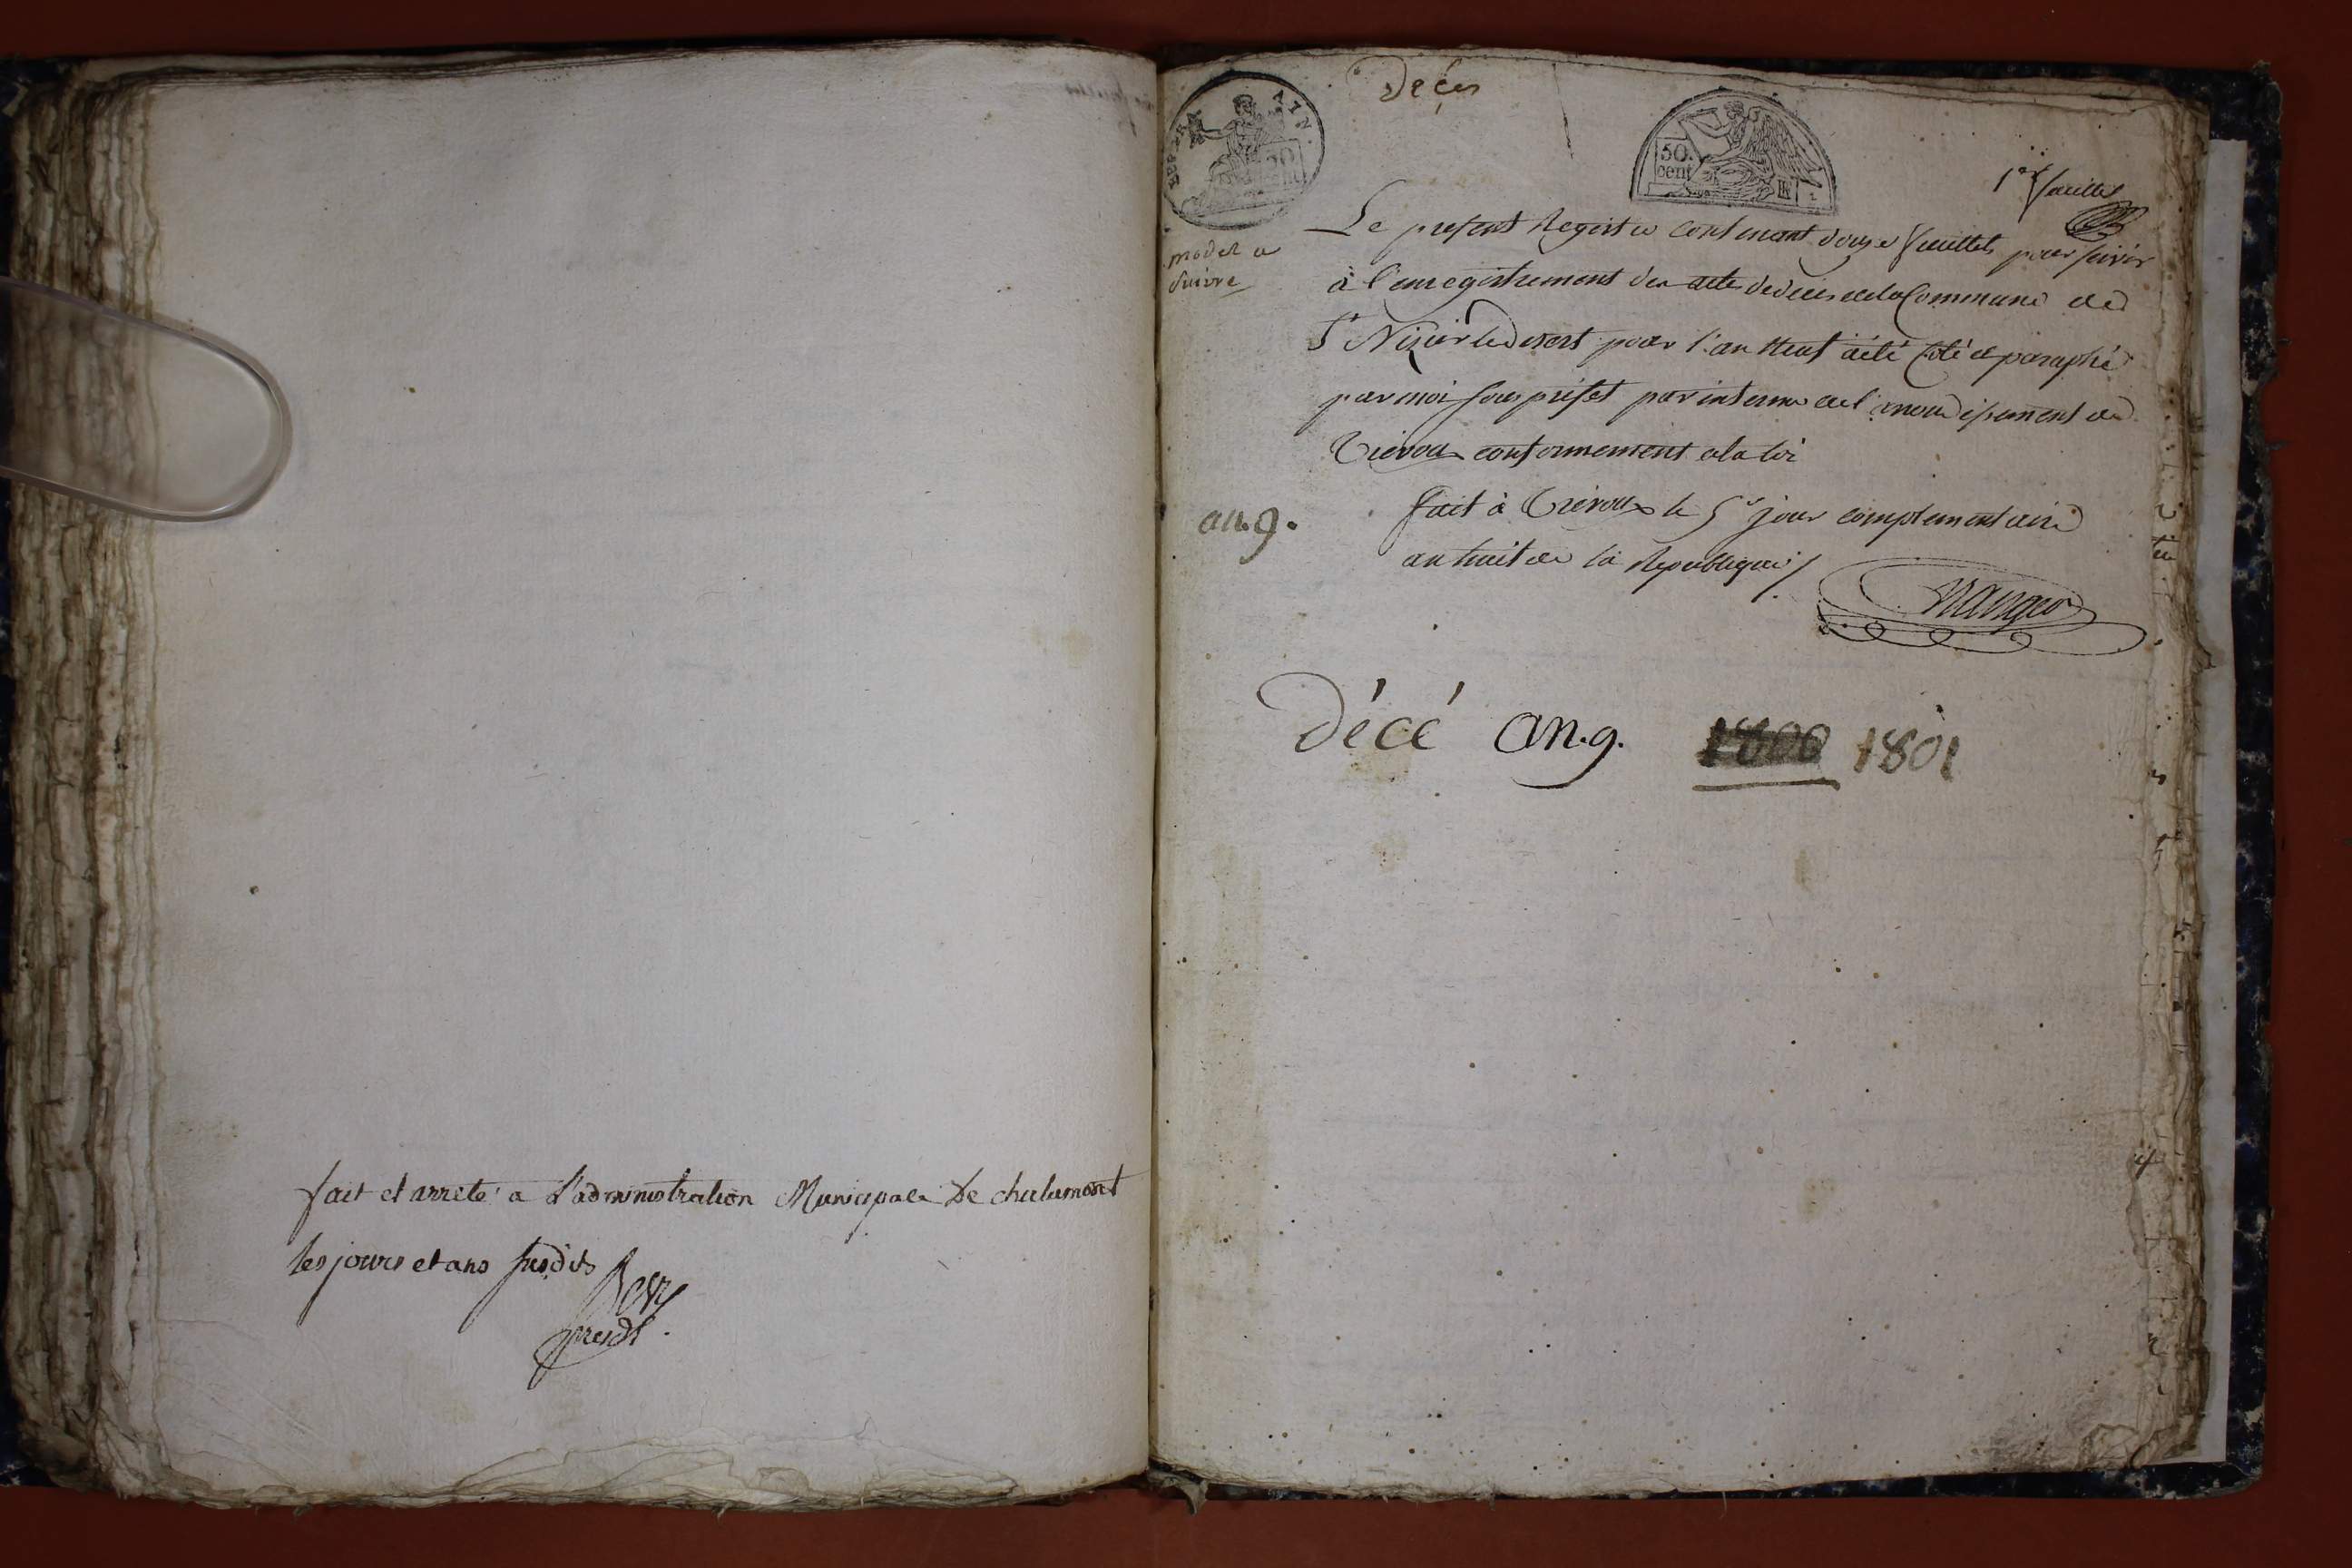 fait et arrêté a L'administration Municipale De chalamont
les jours et ans susdits
presdt.
Décès
50.
cent
1er feuillet
model a
suivre
Le present Registre contenant douze feuillets pour servir
à l'enregistrement des actes de deces de la Commune de
St Nizier le desert pour l'an neuf a été coté et paraphé
par moi sous préfet par interim de l'arrondissement de
Trevoux conformement a la loi
an.9.
fait à Trévoux le 5e jour complementaire
an huit de la Republique
Décé an.9. 1800 1801